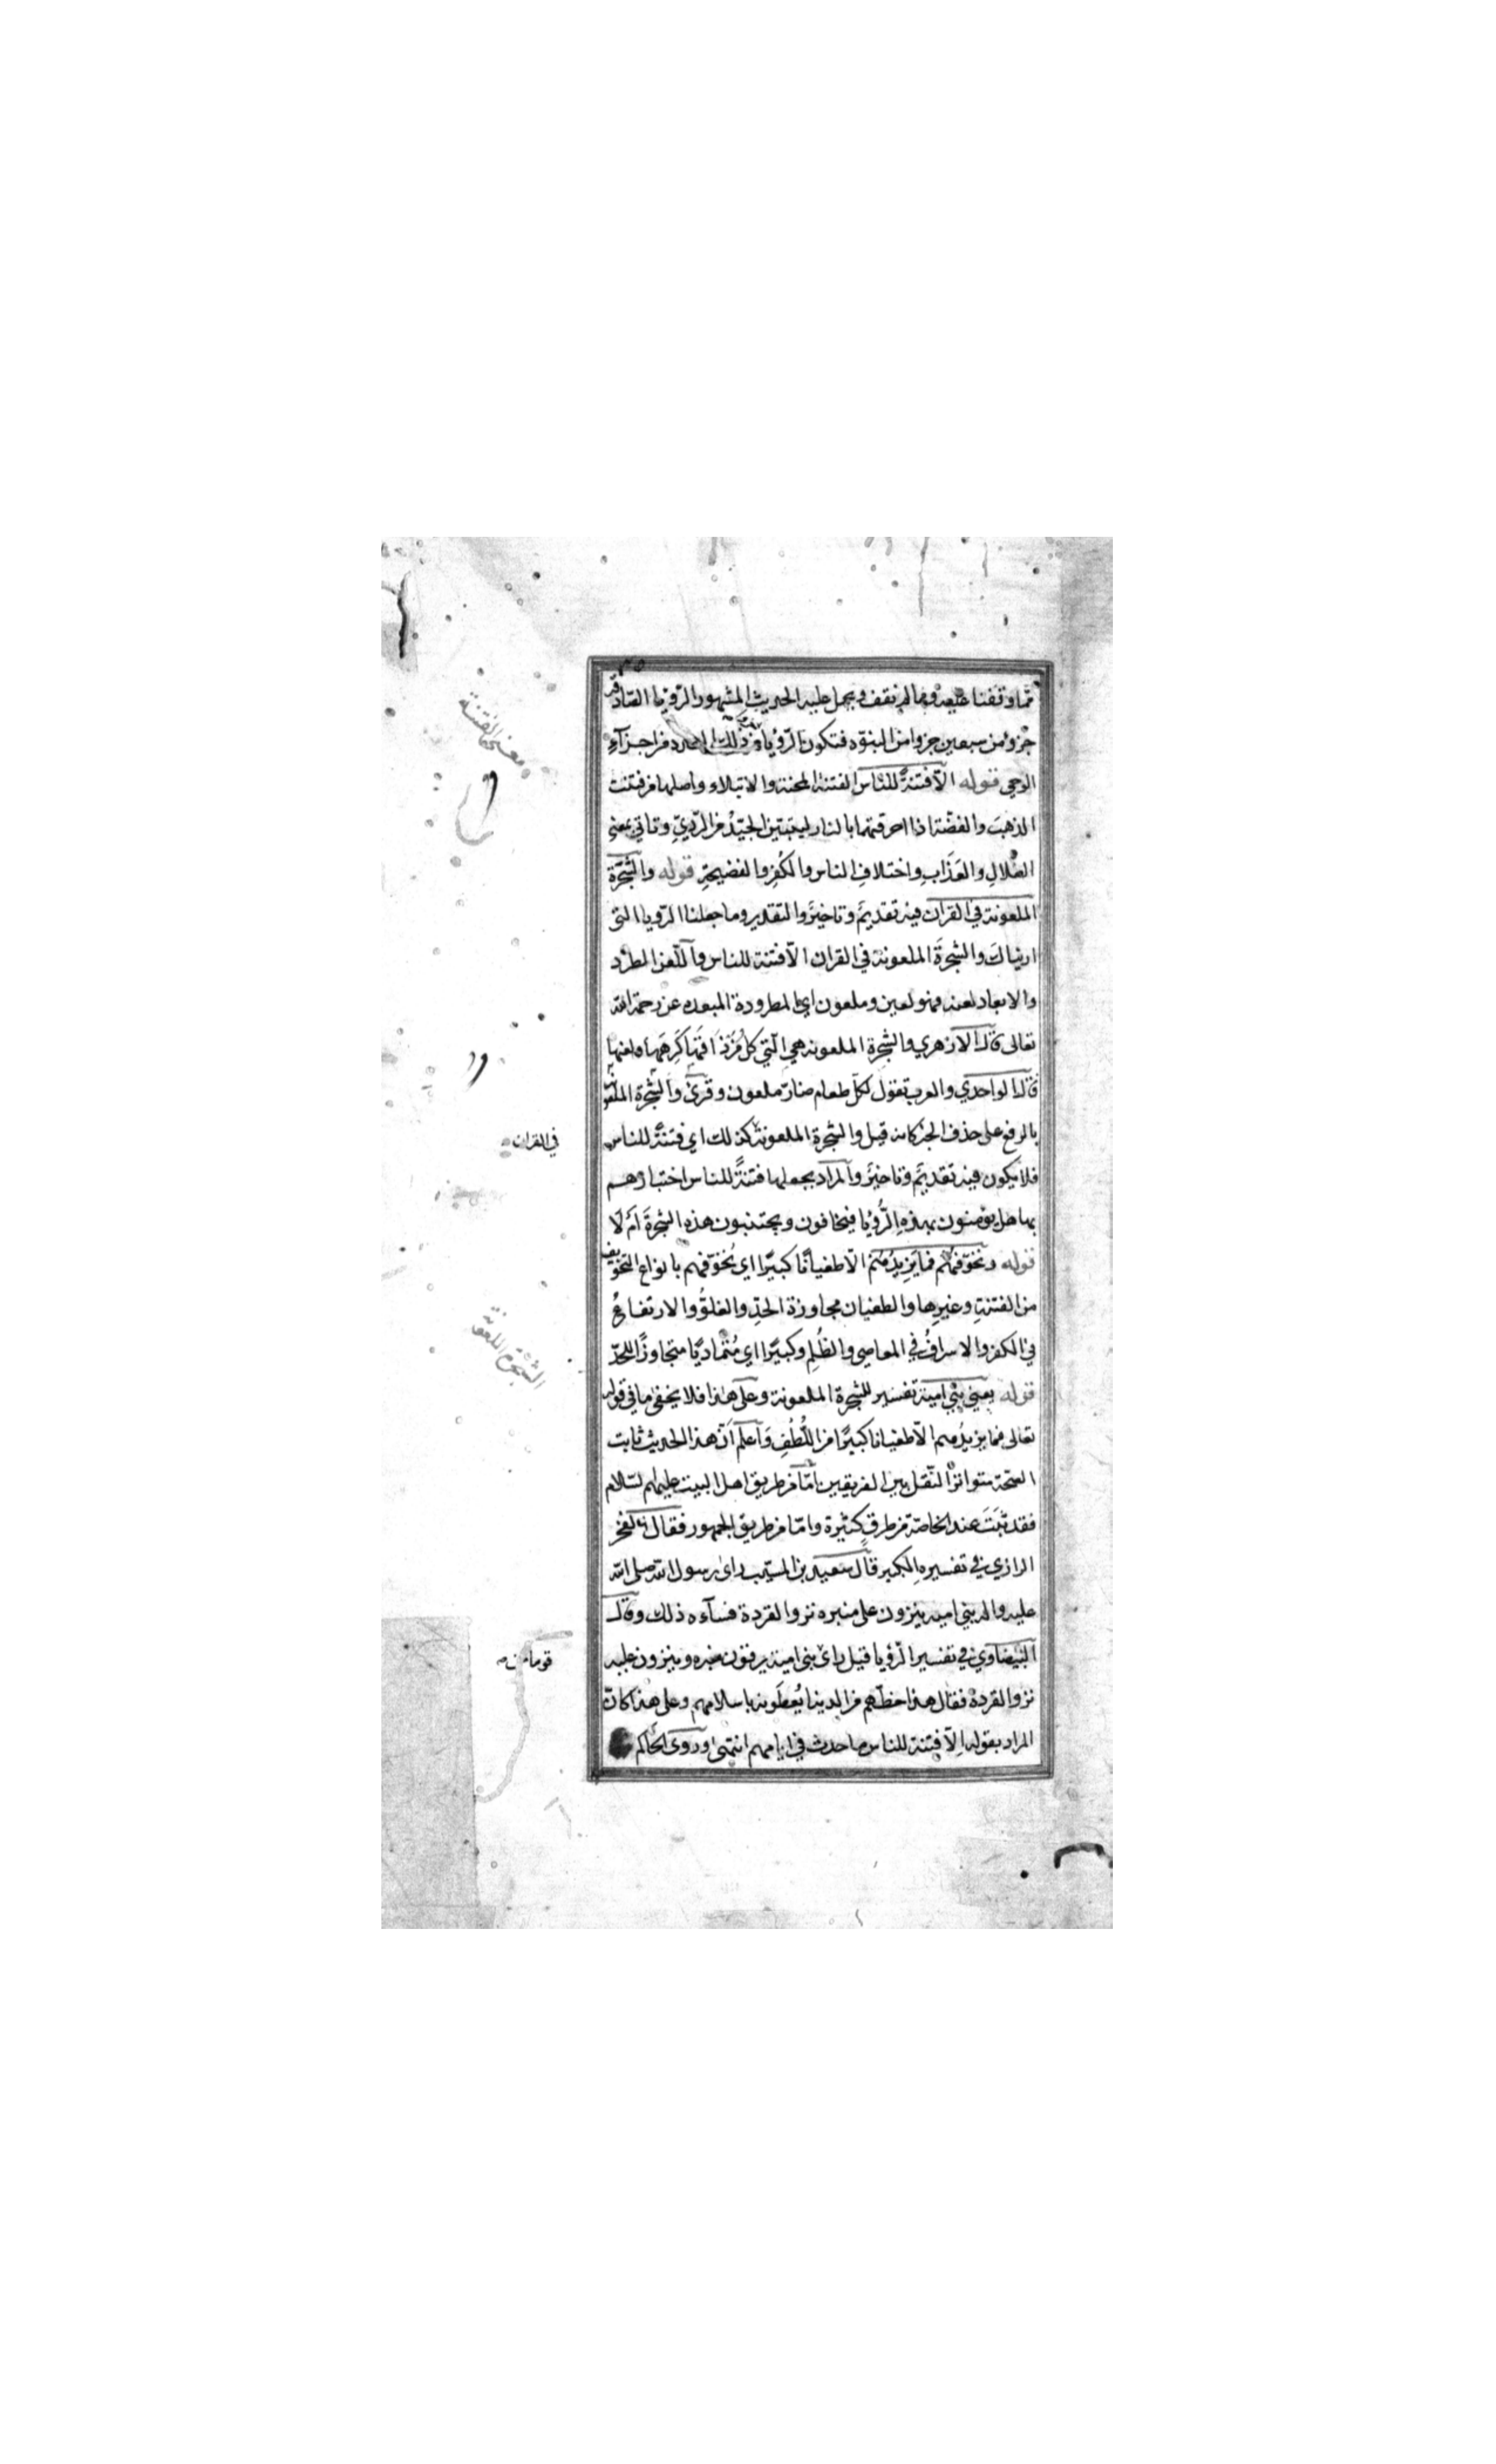 مما وقفنا عليه ومما لم نقف ويحمل عليه الحديث المشهور الرؤيا الصادقة
جزؤ من سبعين جزوا من النبوة فتكون الرؤيا من ذلك العدد من اجزآء
الوحي قوله الا فتنة للناس الفتنة المحنة والابتلاء واصلها من فتنت
الذهب والفضة اذا احرقتهما بالنار ليتبين الجيد من الردي وتاتي بمعنى
الضلال والعذاب واختلاف الناس والكفر والفضيحة قوله والشجرة
الملعونة في القران فيه تقديم وتاخير والتقدير وما جعلنا الرويا التي
اريناك والشجرة الملعونة في القران الا فتنة للناس واللعن الطرد
والابعاد لعنه فهو لعين وملعون اي المطرودة المبعده عن رحمة الله
تعالى قال الازهري والشجرة الملعونه هي التي كل من ذاقها كرهها ولعنها
قال الواحدي والعرب تقول لكل طعام ضار ملعون وقرئ والشجرة الملعونة
بالرفع على حذف الخبر كانه قيل والشجرة الملعونة كذلك اي فتنة للناس
فلا يكون فيه تقديم وتاخير والمراد بجعلها فتنة للناس اختبارهم
بها هل يؤمنون بهذه الرؤيا فيخافون ويجتنبون هذه الشجرة ام لا
قوله ونخوفهم فما يزيدهم الا طغيانا كبيرا اي نخوفهم بانواع التخويف
من الفتنة وغيرها والطغيان مجاوزة الحد والغلو والارتفاع
في الكفر والاسراف في المعاصي والظلم وكبيرا اي متماديا متجاوزا للحد
قوله يعني بني امية تفسير للشجرة الملعونة وعلى هذا فلا يخفى ما في قوله
تعالى فما يزيدهم الا طغيانا كبيرا من اللطف واعلم ان هذا الحديث ثابت
الصحة متواتر النقل بين الفريقين اما من طريق اهل البيت عليهم السلام
فقد ثبت عند الخاصة من طرق كثيرة واما من طريق الجمهور فقال الفخر
الرازي في تفسيره الكبير قال سعيد بن المسيب راى رسول الله صلى الله
عليه واله بني اميه ينزون على منبره نزو القردة فسآءه ذلك وقال
البيضاوي في تفسير الرؤيا قيل راى بني امية يرقون منبره وينزون عليه
نزو القردة فقال هذا حظهم من الدنيا يعطونه باسلامهم وعلى هذا كان
المراد بقوله الا فتنة للناس ما حدث في ايامهم انتهى وروى الحاكم
معنى الفتنة
في القران
الشجرة الملعونة
قوما من